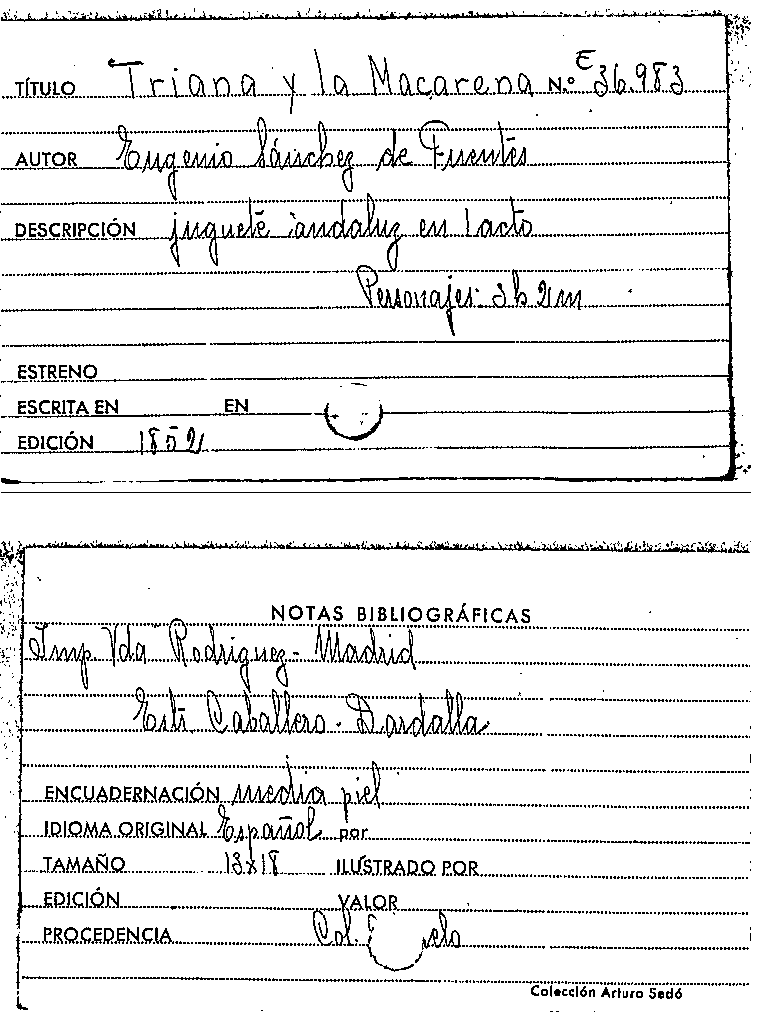 TÍTULO Triana y la Macarena N.º E 36.983
AUTOR Eugenio Sánchez de Fuentes
DESCRIPCIÓN juguete andaluz en 1 acto
Personajes: 3h 2m
ESTRENO
ESCRITA EN EN
EDICIÓN 1852
NOTAS BIBLIOGRÁFICAS
Imp Vda Rodriguez - Madrid
Estr. Caballero - Dardalla
ENCUADERNACIÓN media piel
IDIOMA ORIGINAL Español por
TAMAÑO 13x18 ILUSTRADO POR
EDICIÓN VALOR
PROCEDENCIA Col.
Colección Arturo Sedó